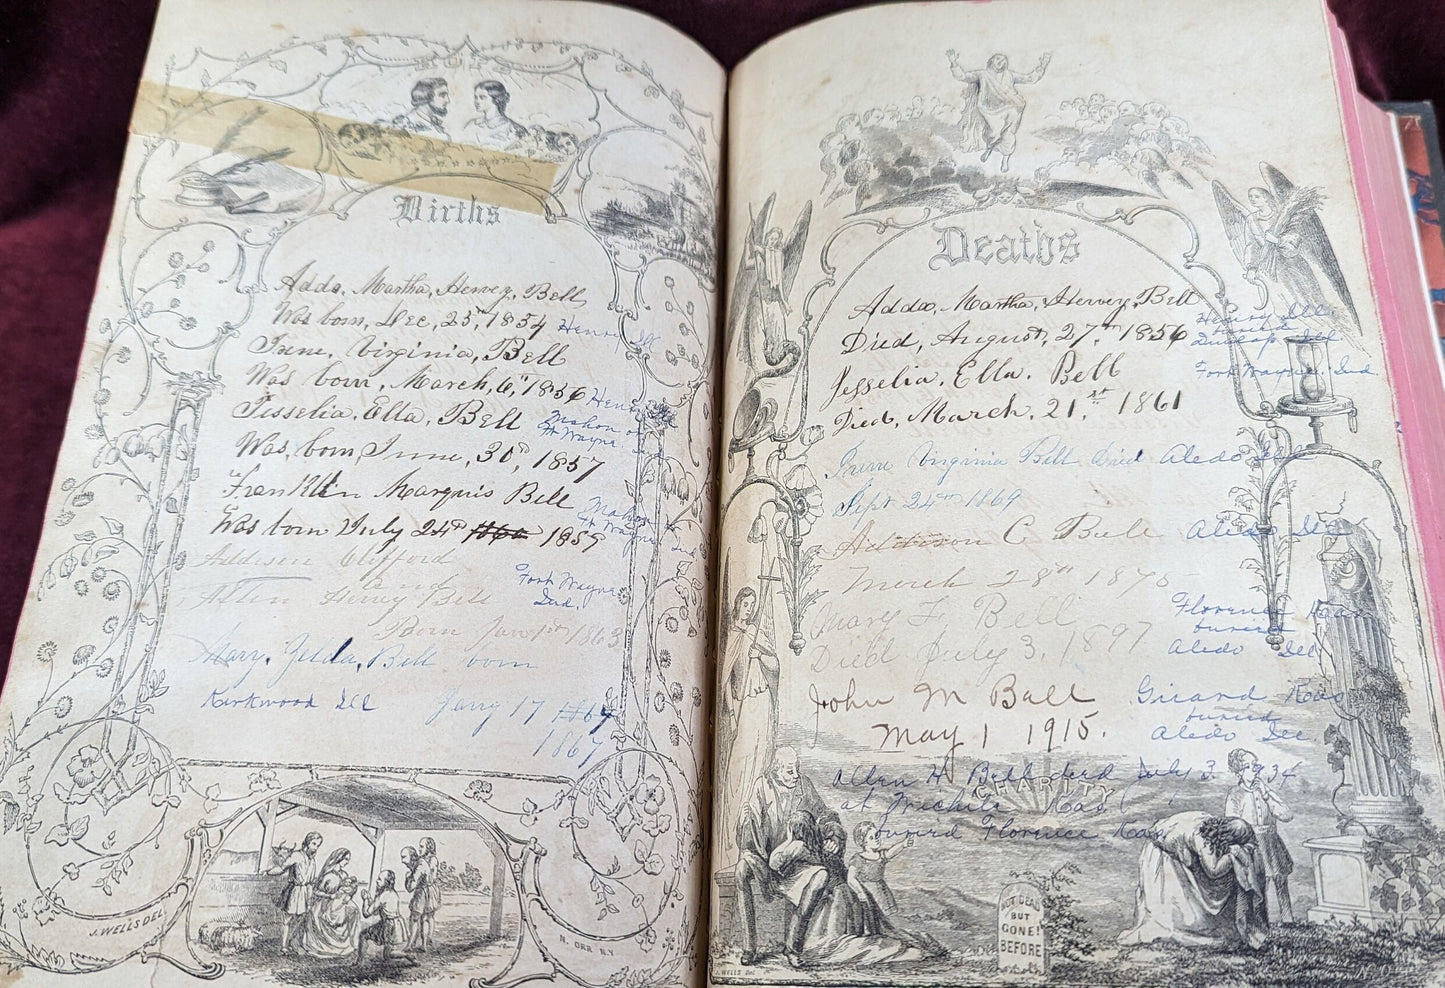 Births
Adda, Martha, Hervey, Bell
Was born, Dec, 25th, 1854 Henry Ill
Irene, Virginia, Bell
Was born, March, 6th, 1856 Henry
Jesselia, Ella, Bell
Ft Wayne
Was, born, June, 30th, 1857
Franklin Marquis Bell
Was born July 24th 1860 1859
Ft Wayne
Ind
Addison Clifford
and
Fort Wayne
Ind.
Allen Hervey Bell
Born Jany 1st 1863
Mary, Zelda, Bell born
Kirkwood Ill Jany 17 1869
1867
J. WELLS DEL.
N. ORR N.Y.
Deaths
Adda, Martha, Hervey, Bell
Died, August, 27th, 1856
Dunlap Ill
Jesselia, Ella, Bell Fort Wayne, Ind.
Died, March, 21,st 1861
Irene Virginia Bell died Aledo Ill
Sept 24th 1869
Addison C Bell Aledo Ill
March 28th 1875
Mary F Bell Florence Kas
buried
Died July 3, 1897 Aledo Ill
John M Bell Girard Kas
buried
May 1 1915. Aledo Ill
Allen H Bell died July 3 1934
at Wichita Kas
buried Florence Kan
CHARITY
NOT DEAD
BUT
GONE!
BEFORE
J. WELLS DEL